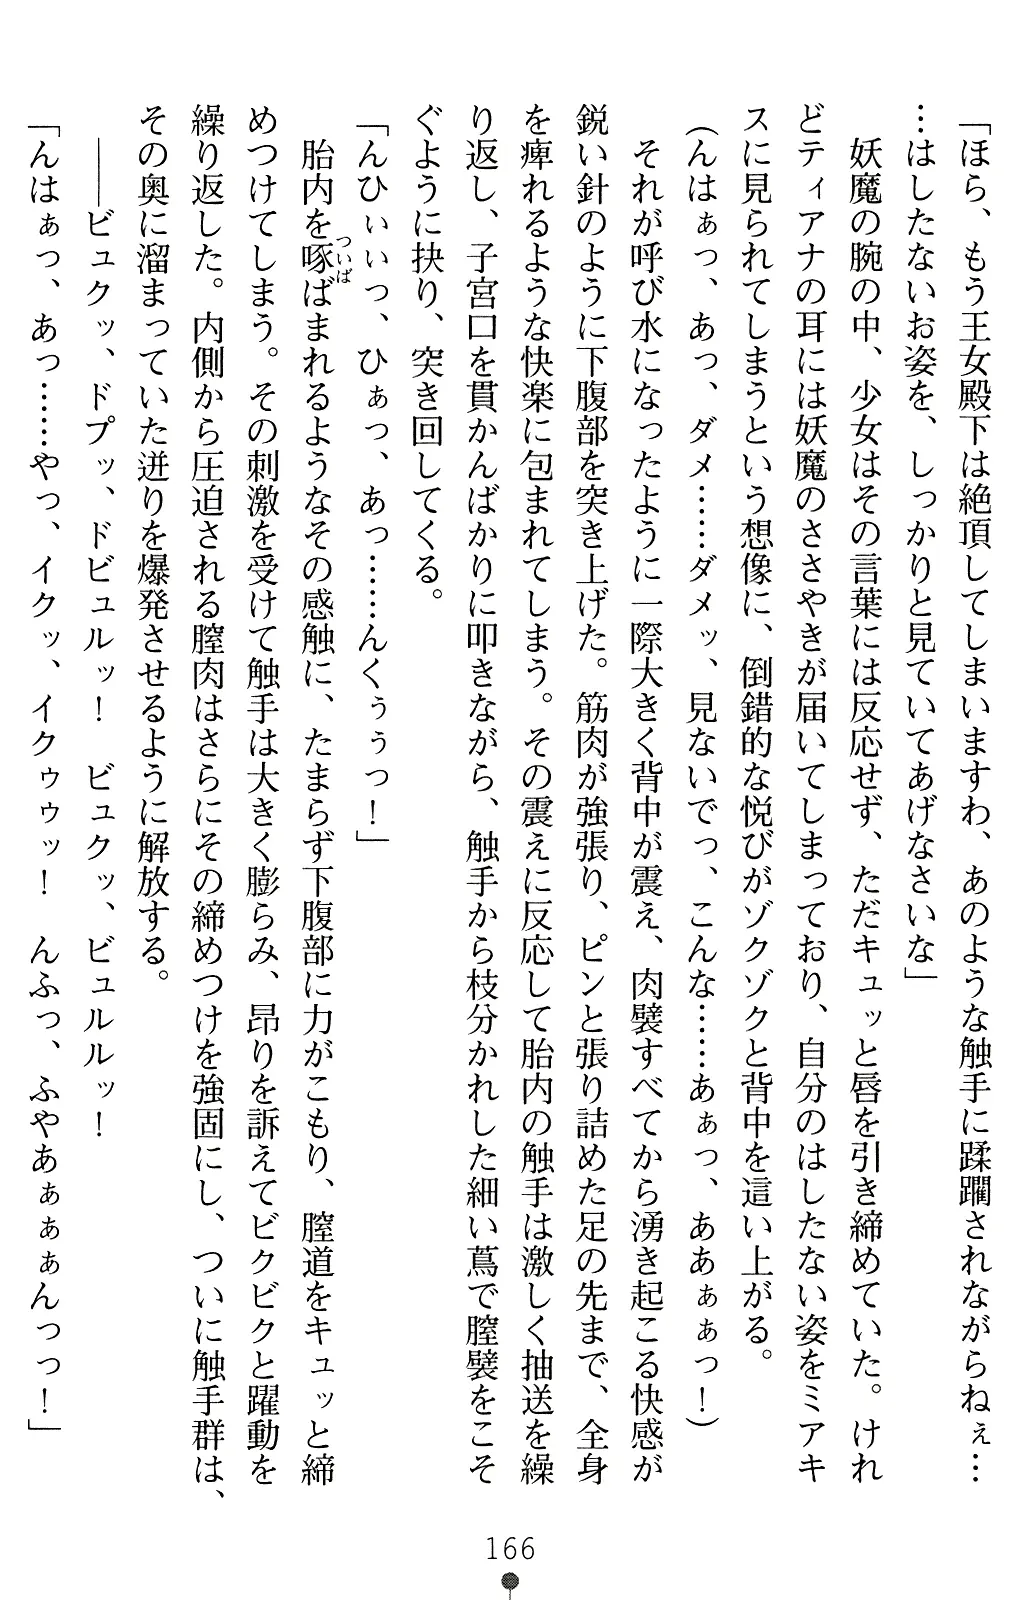 「ほら、もう王女殿下は絶頂してしまいますわ、あのような触手に蹂躙されながらねぇ…
…はしたないお姿を、しっかりと見ていてあげなさいな」
　妖魔の腕の中、少女はその言葉には反応せず、ただキュッと唇を引き締めていた。けれ
どティアナの耳には妖魔のささやきが届いてしまっており、自分のはしたない姿をミアキ
スに見られてしまうという想像に、倒錯的な悦びがゾクゾクと背中を這い上がる。
（んはぁっ、あっ、ダメ……ダメッ、見ないでっ、こんな……あぁっ、ああぁぁっ！）
　それが呼び水になったように一際大きく背中が震え、肉襞すべてから湧き起こる快感が
鋭い針のように下腹部を突き上げた。筋肉が強張り、ピンと張り詰めた足の先まで、全身
を痺れるような快楽に包まれてしまう。その震えに反応して胎内の触手は激しく抽送を繰
り返し、子宮口を貫かんばかりに叩きながら、触手から枝分かれした細い蔦で膣襞をこそ
ぐように抉り、突き回してくる。
「んひぃいっ、ひぁっ、あっ……んくぅぅっ！」
　胎内を啄（ついば）ばまれるようなその感触に、たまらず下腹部に力がこもり、膣道をキュッと締
めつけてしまう。その刺激を受けて触手は大きく膨らみ、昂りを訴えてビクビクと躍動を
繰り返した。内側から圧迫される膣肉はさらにその締めつけを強固にし、ついに触手群は、
その奥に溜まっていた迸りを爆発させるように解放する。
　――ビュクッ、ドプッ、ドビュルッ！　ビュクッ、ビュルルッ！
「んはぁっ、あっ……やっ、イクッ、イクゥゥッ！　んふっ、ふやあぁぁぁんっっ！」
166